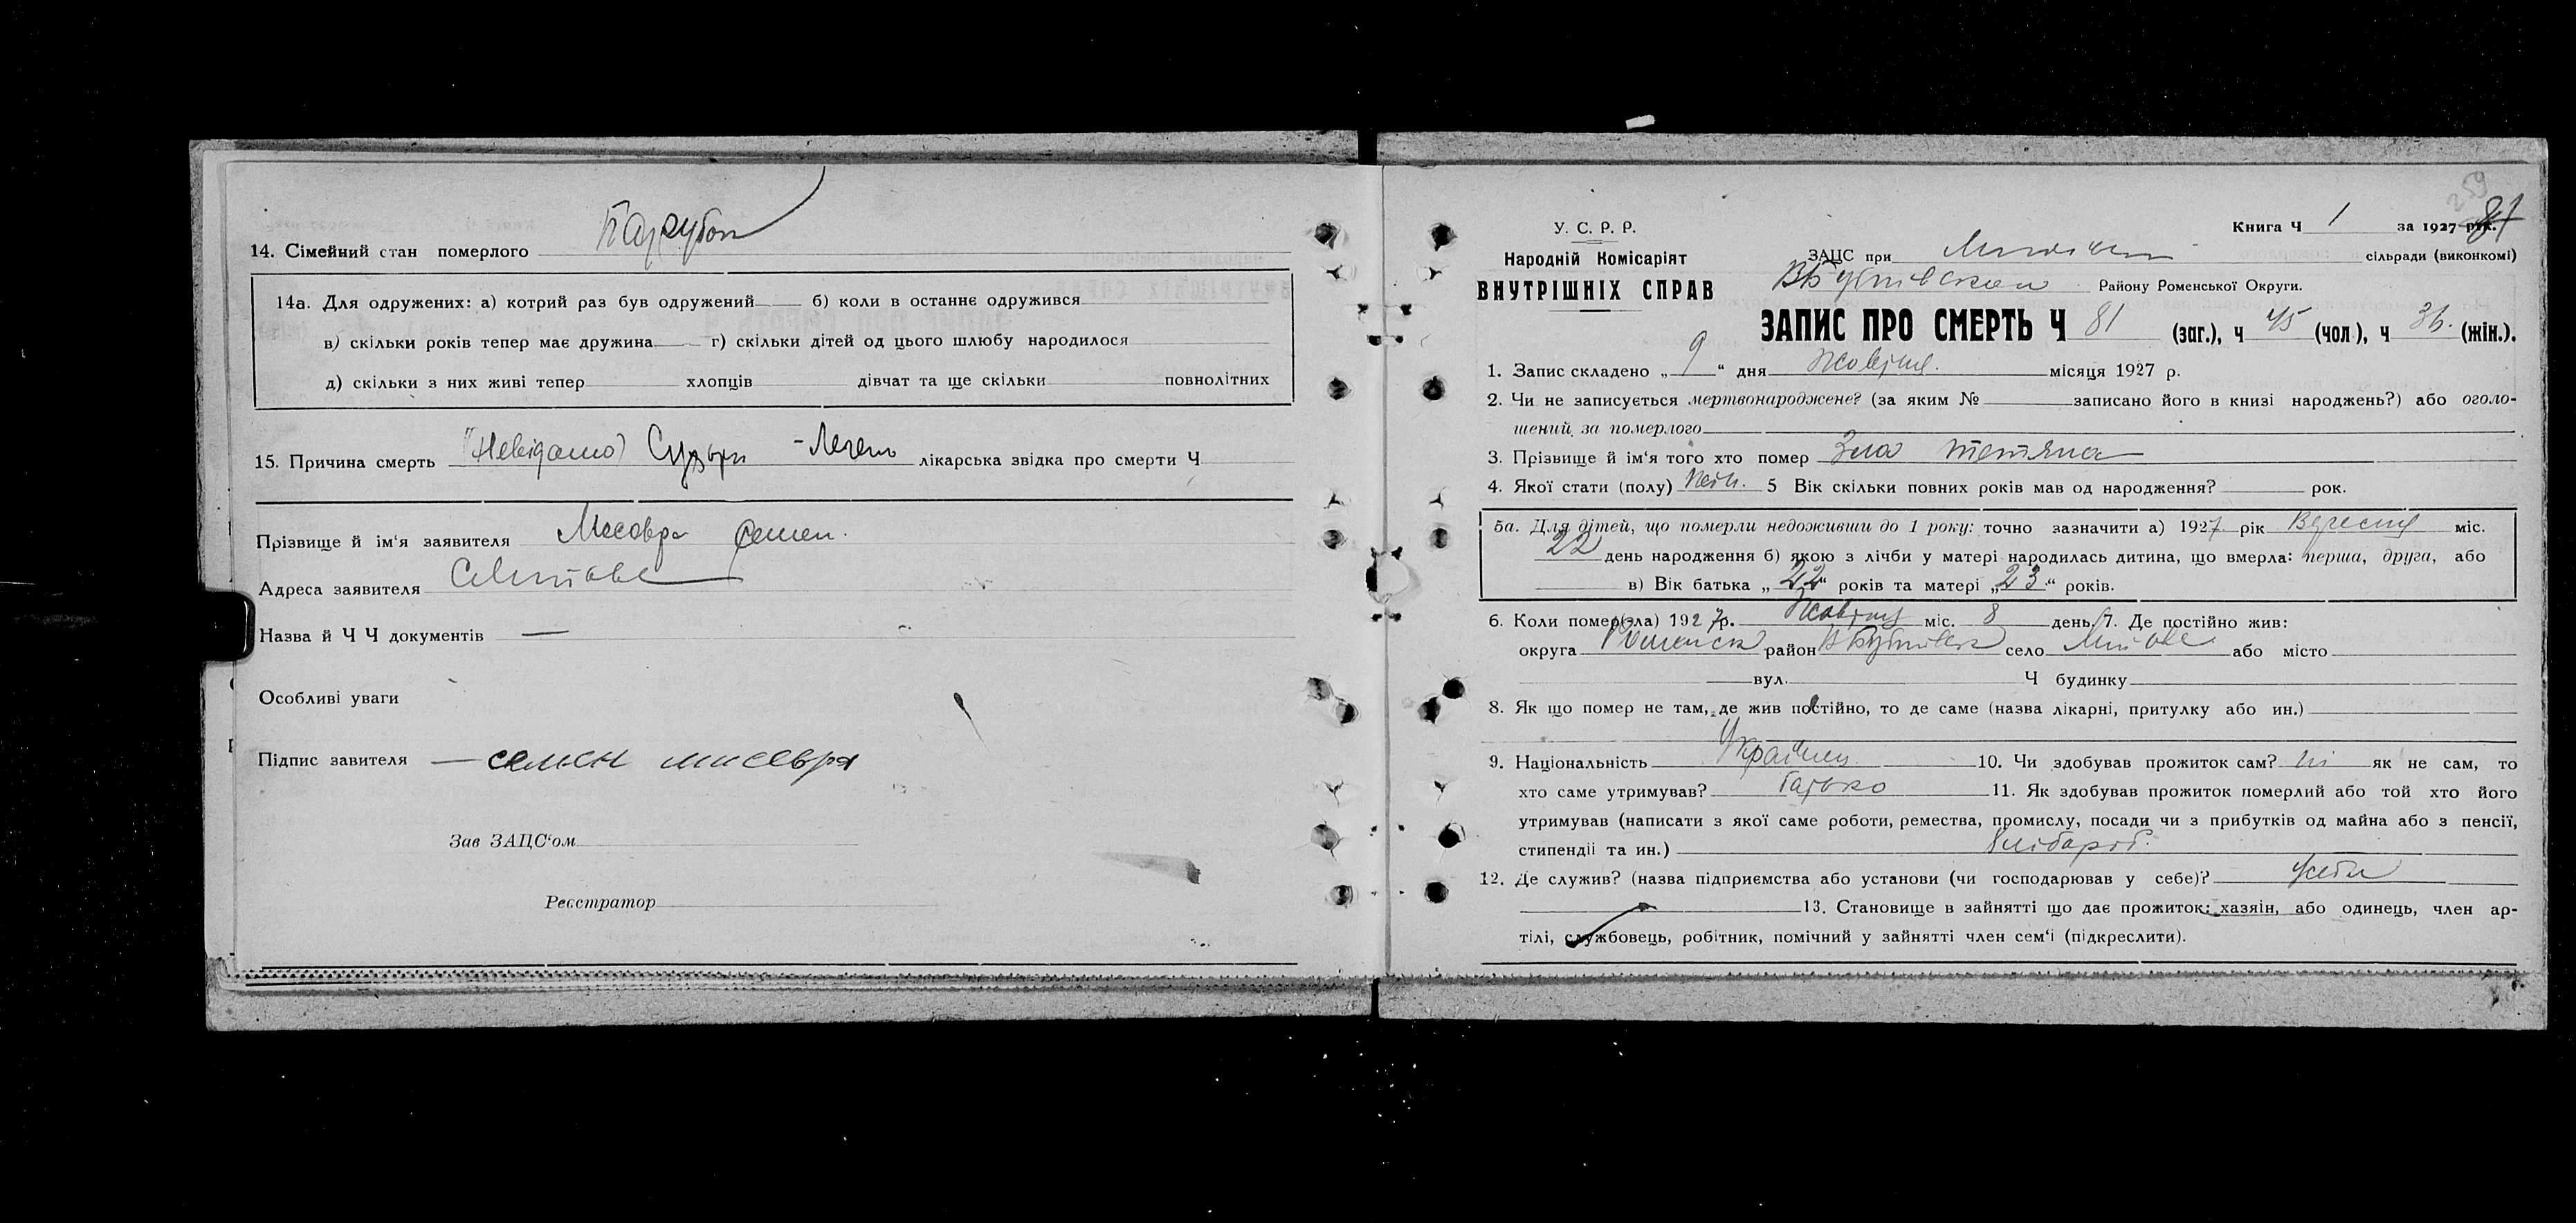 14. Сімейний стан померлого Парубок
14а. Для одружених: а) котрий раз був одружений б) коли в останнє одружився
в) скільки років тепер має дружина г) скільки дітей од цього шлюбу народилося
д) скільки з них живі тепер хлопців дівчат та ще скільки повнолітних
15. Причина смерть (Невідомо) лікарська звідка про смерти Ч
Прізвище й ім'я заявителя Семен
Адреса заявителя
Назва й Ч Ч документів —
Особливі уваги
Підпис завителя — семен мисевра
Зав ЗАЦС'ом
Реєстратор
259
У. С. Р. Р.
Народній Комісаріят
ВНУТРІШНІХ СПРАВ
Книга Ч 1 за 1927 рік. 81
ЗАЦС при сільради (виконкомі)
Району Роменської Округи.
ЗАПИС ПРО СМЕРТЬ Ч 81 (заг.), ч 45 (чол), ч 36. (жін.).
1. Запис складено „ 9 " дня Жовтня місяця 1927 р.
2. Чи не записується мертвонароджене? (за яким № записано його в книзі народжень?) або оголо-
шений за померлого
3. Прізвище й ім'я того хто помер Зла Тетяна
4. Якої стати (полу) жін. 5 Вік скільки повних років мав од народження? рок.
5а. Для дітей, що померли недоживши до 1 року: точно зазначити а) 1927 рік Вересня міс.
22 день народження б) якою з лічби у матері народилась дитина, що вмерла: перша, друга, або
в) Вік батька „ 22 " років та матері „ 23 " років.
6. Коли помер(ла) 1927р. Жовтня міс. 8 день 7. Де постійно жив:
округа Роменськ район село або місто
вул. Ч будинку
8. Як що помер не там, де жив постійно, то де саме (назва лікарні, притулку або ин.)
9. Національність Українец 10. Чи здобував прожиток сам? ні як не сам, то
хто саме утримував? батько 11. Як здобував прожиток померлий або той хто його
утримував (написати з якої саме роботи, ремества, промислу, посади чи з прибутків од майна або з пенсії,
стипендії та ин.) хлібороб.
12. Де служив? (назва підприємства або установи (чи господарював у себе)? усебе
13. Становище в зайнятті що дає прожиток: хазяїн, або одинець, член ар-
тілі, службовець, робітник, помічний у зайнятті член сем'ї (підкреслити).